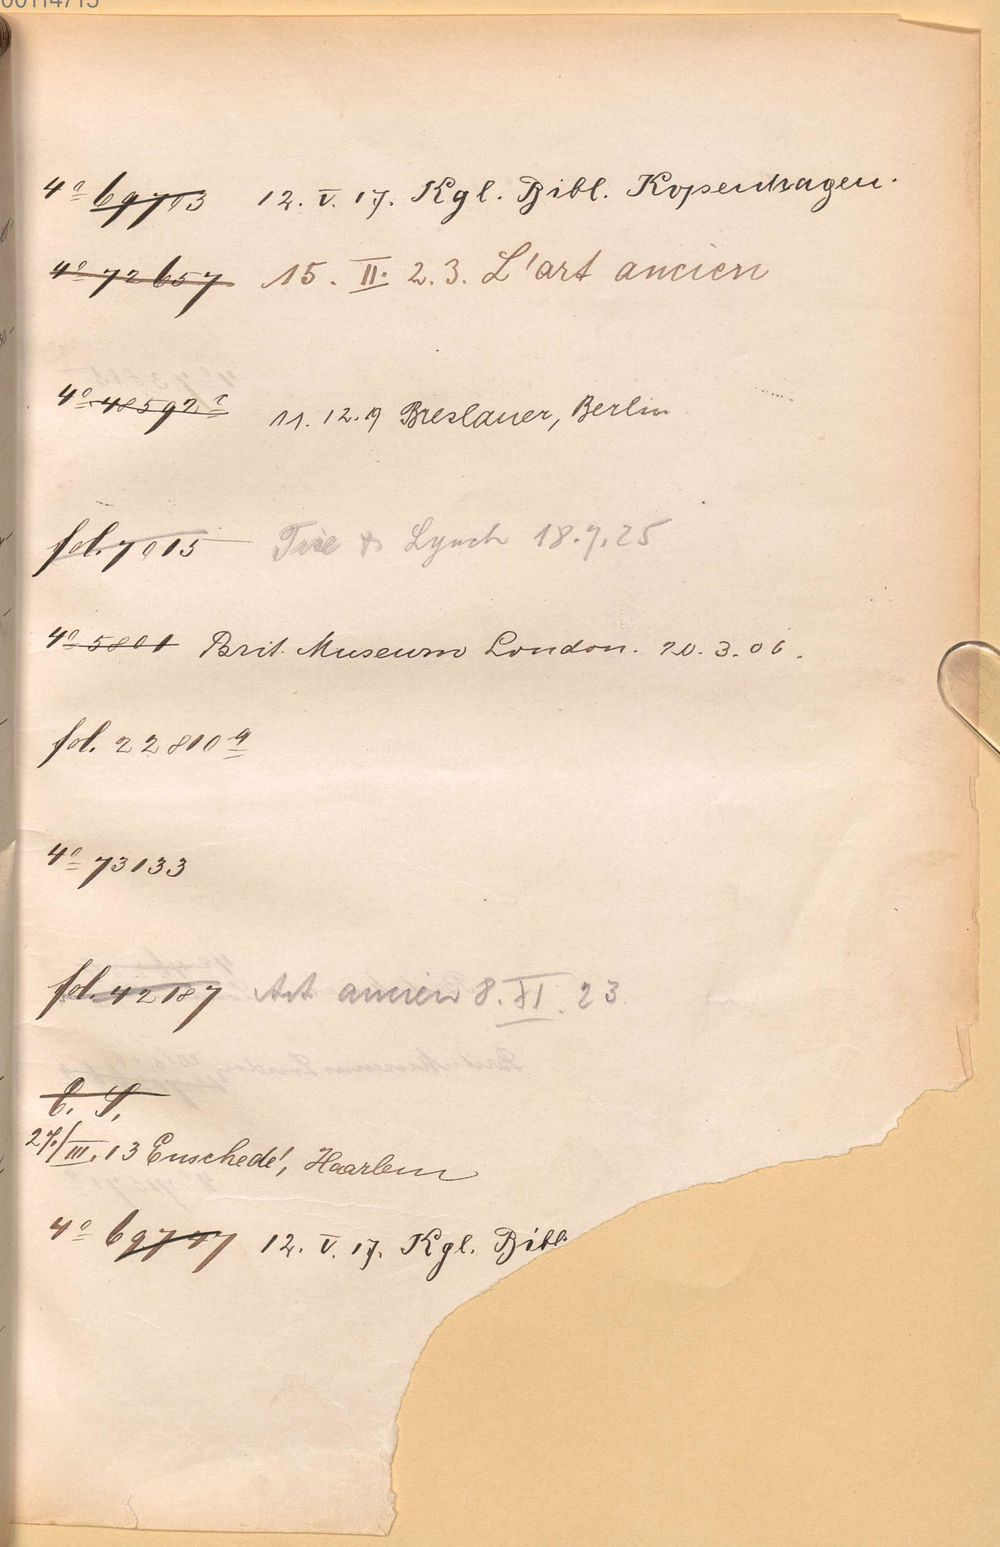 00114715
4º 69703 12. V. 17. Kgl. Bibl. Kopenhagen.
4º 72657 15. II. 2.3. L'art ancien
4º 48592 11. 12. 19 Breslauer, Berlin
fol. 7015 & Lynch 18.7.25
4º 5801 Brit. Museum London. 20. 3. 06.
fol. 22810 a
4º 73133
fol. 42187 Art ancien 8. XI. 23
C. S.
27/III. 13 Enschedé, Haarlem
4º 69747 12. V. 17. Kgl. Bibl